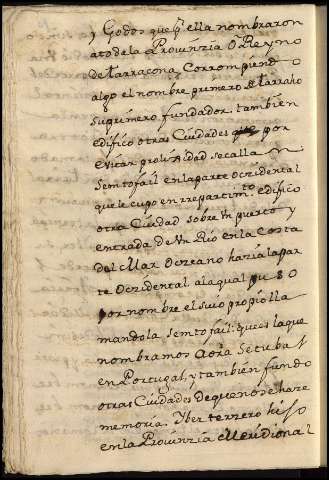 y Godos que q̃ ella nombraron
a toda la Provinzia O Reyno
de tarracona Corrompiendo
algo el nombre primero de tarraho
su primero fundador. tambien
edifico otras Ciudades que por
evitar prolixidad se calla
Semtofail en la parte Oczidental
que le cupo en repartim.to edifico
otra Ciudad sobre un puerto y
entrada de Un Rio en la Costa
del Mar Oczeano hazia la par
te Oczidental a la qual puso
por nombre el suio propio lla
mandola semtofail: que es la que
nombramos aora Setubal
en Portugal, y tambien fundo
otras Ciudades de que no se haze
memoria. Iber terzero hijo
en la Provinzia Meridional